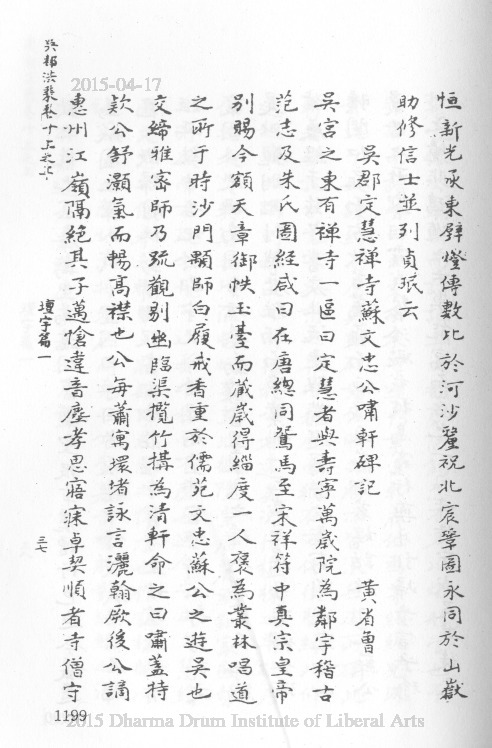 恒新光承東壁燈傳數比於河沙釐祝北宸鞏固永同於山嶽
助修信士並列貞珉云
吳郡定慧禪寺蘇文忠公嘯軒碑記 黃省曾
吳宮之東有禅寺一區曰定慧者與壽寧萬歲院為鄰宇稽古
范志及朱氏圖經咸曰在唐總同鴛馬至宋祥符中真宗皇帝
別賜今額天章御帙玉臺而藏歲得緇度一人褒為叢林唱道
之所于時沙門顒師白履戒香重於儒苑文忠蘇公之遊吳也
交締雅密師乃疏觀别幽臨渠攬竹搆為清軒命之曰嘯蓋持
欵公舒灝氣而暢高襟也公每蕭寓環堵詠言灑翰厥後公謫
惠州江嶺隔絕其子邁愴違音塵孝思寤寐卓契順者寺僧守
吳都法乘卷十上之上
壇宇篇一
三七
1199
2015-04-17
2015 Dharma Drum Institute of Liberal Arts